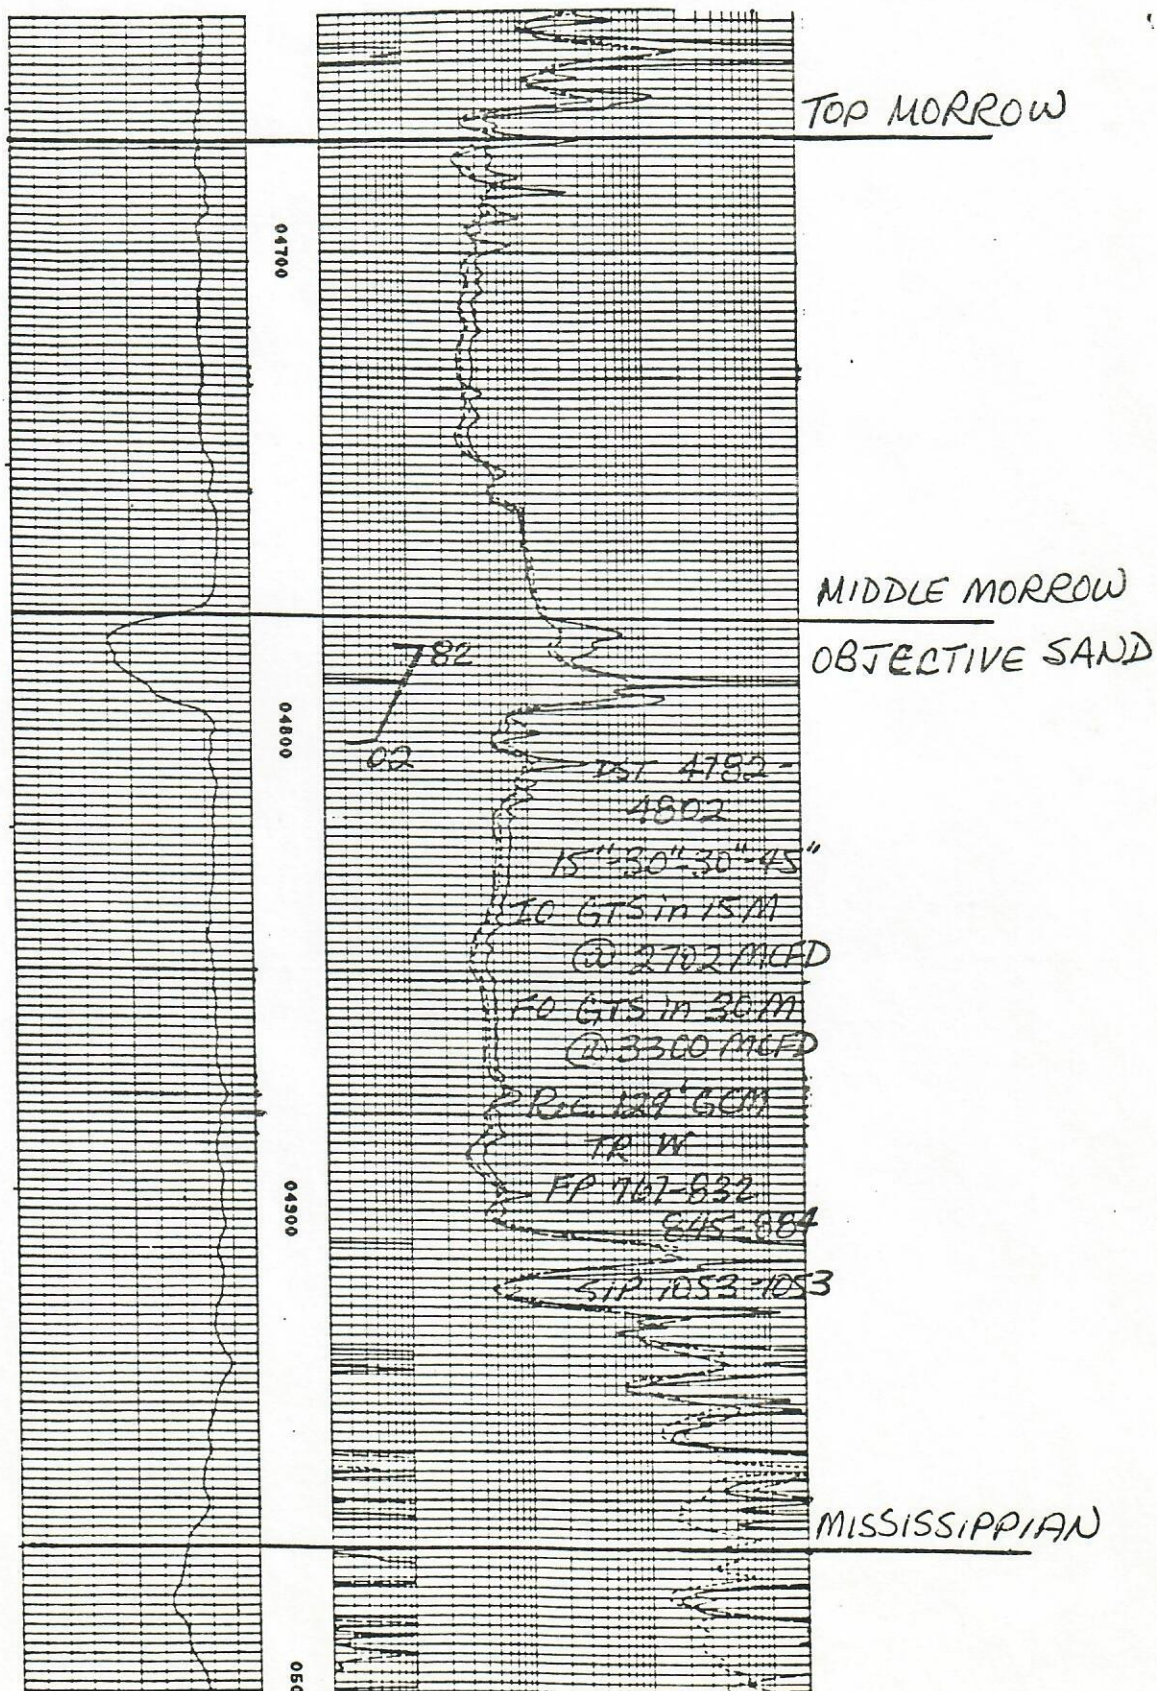 TOP MORROW
04700
MIDDLE MORROW
OBJECTIVE SAND
82
04800
02
DST 4782-
4802
15"-30"-30"-45"
IO GTS in 15M
@ 2702 MCFD
FO GTS in 30M
@ 3300 MCFD
Rec. 129' GCM
TR W
FP 767-832
845-884
04900
SIP 1053-1053
MISSISSIPPIAN
050